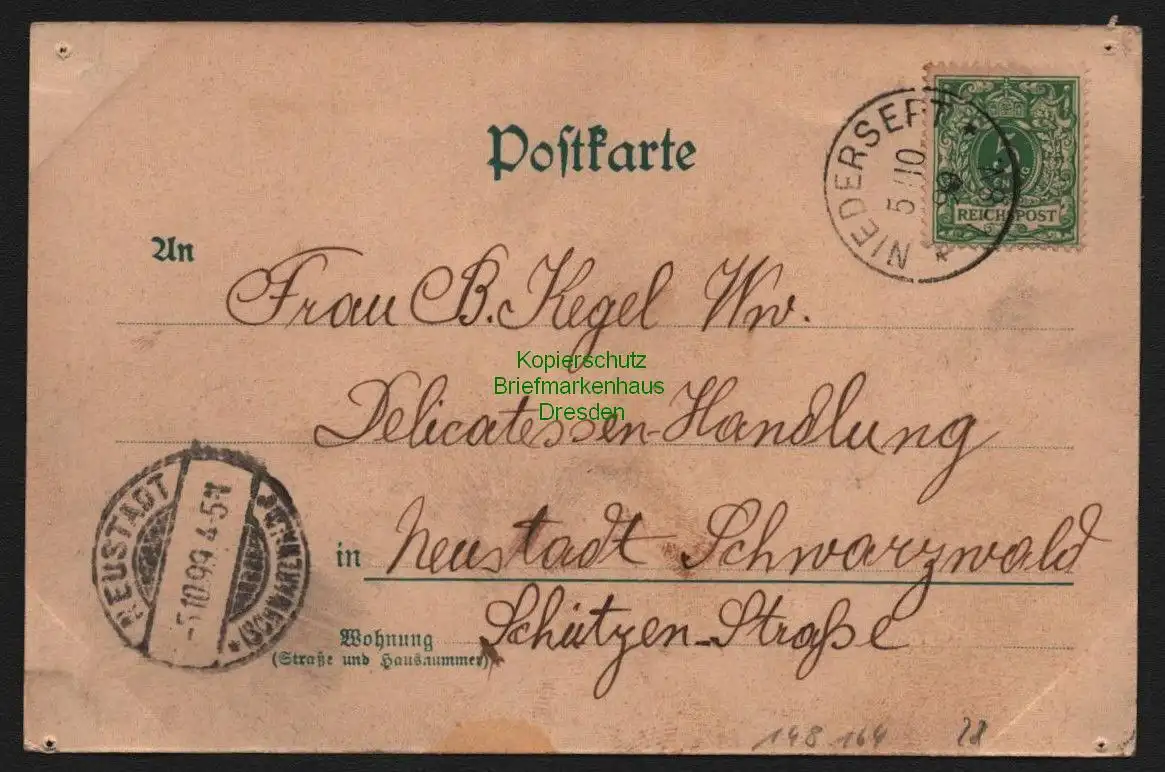 Postkarte
NIEDERSEPT
5/10
99
REICHSPOST
An
Frau B. Kegel Ww.
Kopierschutz
Briefmarkenhaus
Dresden
Delicatessen-Handlung
NEUSTADT
(SCHWARZWALD)
-5.10.99. 4-5N
in Neustadt Schwarzwald
Wohnung Schützen-Straße
(Straße und Hausnummer)
148 164 28